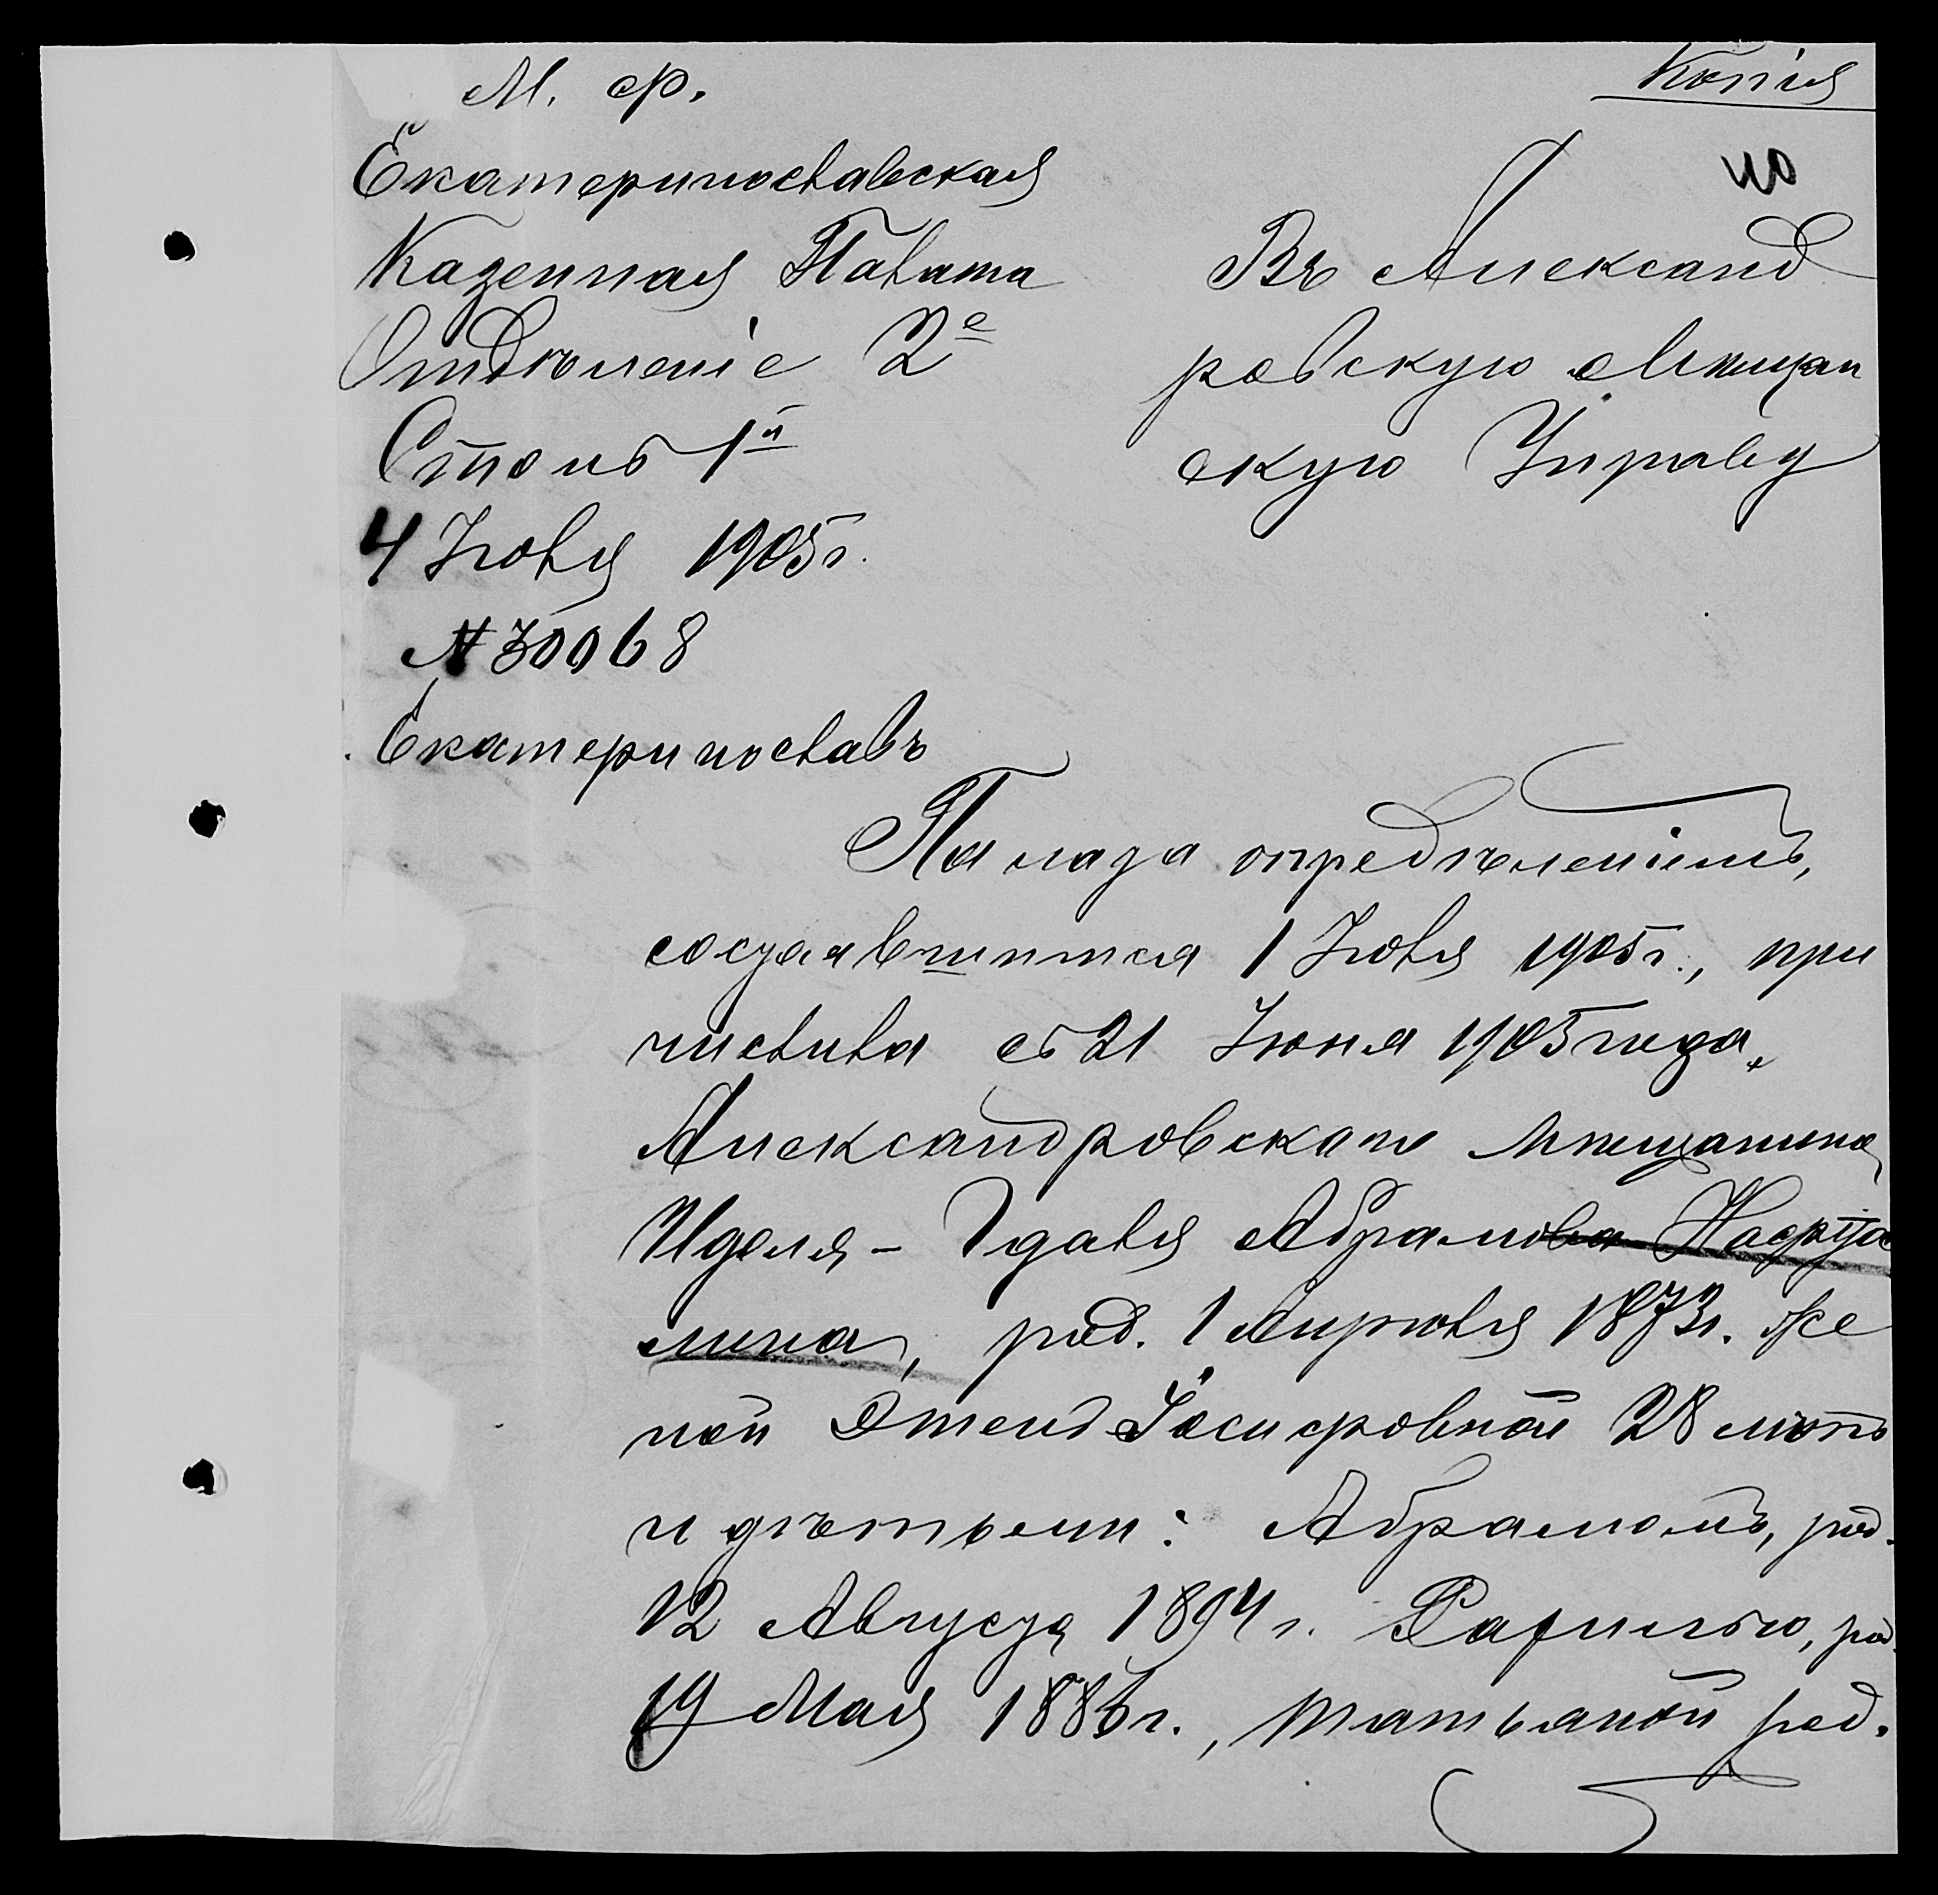 М. Ф.
Копія
Екатеринославская
Казенная Палата
Отдѣленіе 2е
Столъ 1й
4 Іюля 1905 г.
№ 30068
Екатеринославъ
Въ Александ
ровскую Мѣщан
скую Управу
Палата опредѣленіемъ,
состоявшимся 1 Іюля 1905 г., при
числила съ 21 Іюня 1905 года,
Александровскаго мѣщанина
Иделя - Абрамова
лина, род. 1 Апрѣля 1873 г. же
ной Іосифовной 28 лѣтъ
и дѣтьми: Абрамомъ, род.
12 Августа 1894 г. род.
19 Мая 1886 г., Татьяной род.